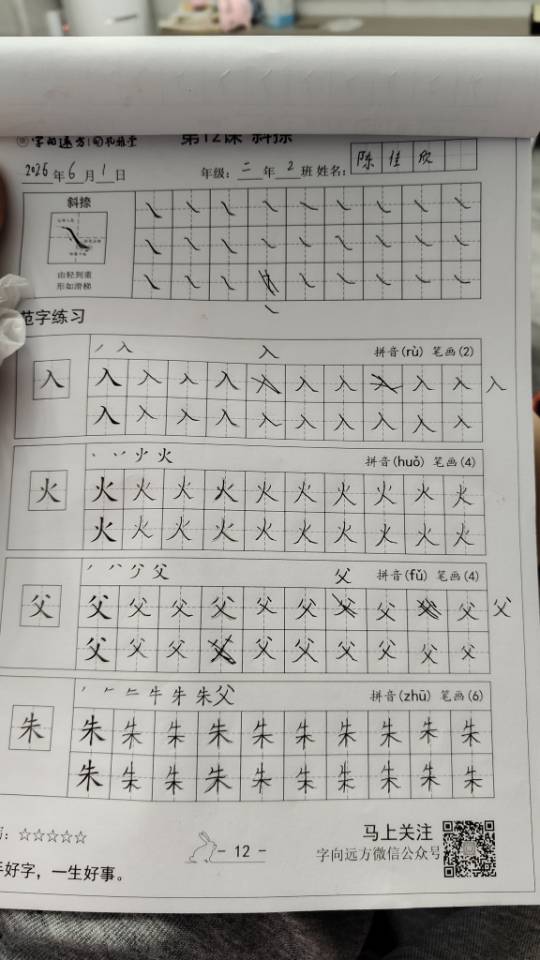 第12课 斜捺
2026年6月1日 年级：二年2班 姓名：陈佳欣
斜捺
由轻到重
形如滑梯
范字练习
丿 入 入 拼音(rù) 笔画(2)
入 入 入 入 入 入 入 入 入 入 入 入
入 入 入 入 入 入 入 入 入 入
火 火 拼音(huǒ) 笔画(4)
火 火 火 火 火 火 火 火 火 火 火
火 火 火 火 火 火 火 火 火 火
父 父 拼音(fǔ) 笔画(4)
父 父 父 父 父 父 父 父 父 父 父 父
父 父 父 父 父 父 父 父 父 父
丿 𠂉 牛 朱 朱 父 拼音(zhū) 笔画(6)
朱 朱 朱 朱 朱 朱 朱 朱 朱 朱 朱
朱 朱 朱 朱 朱 朱 朱 朱 朱 朱
☆☆☆☆☆
马上关注
- 12 -
字向远方微信公众号
好字，一生好事。